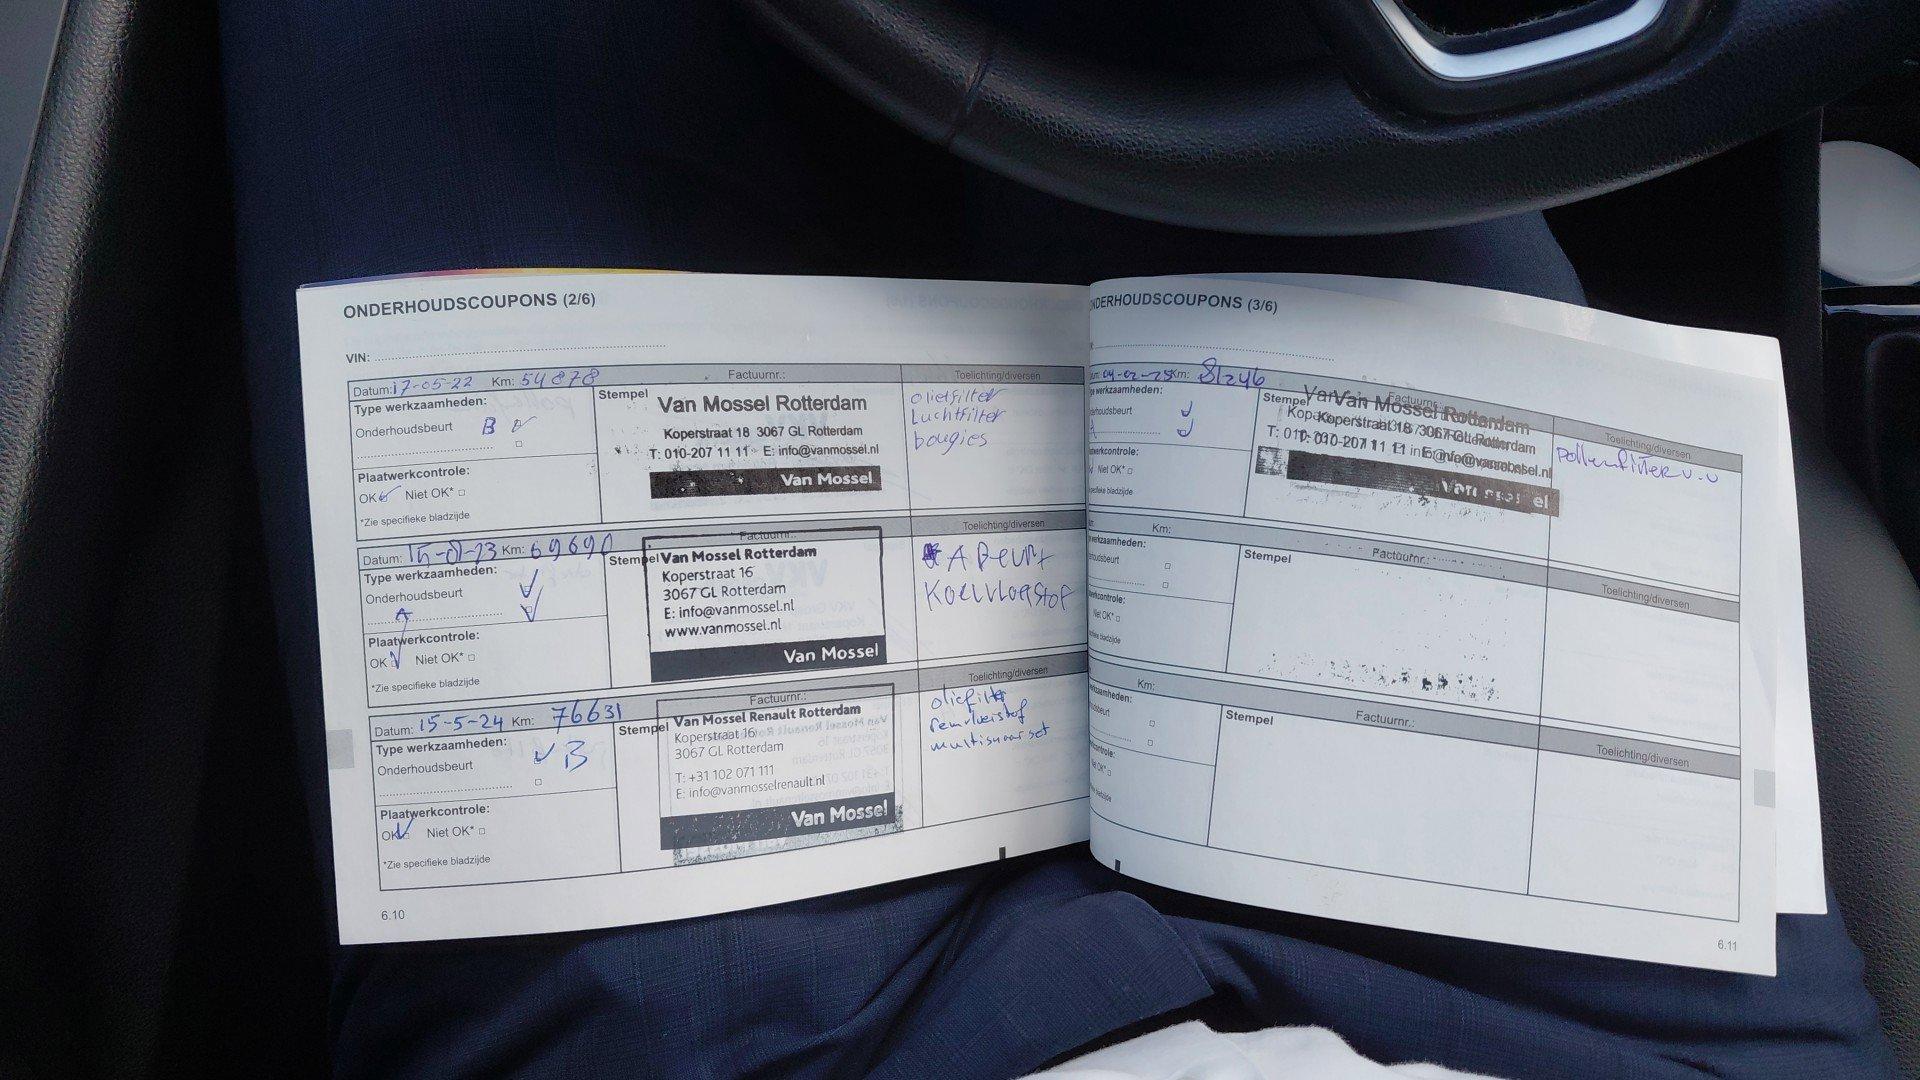 ONDERHOUDSCOUPONS (2/6)
VIN:
Datum: 17-05-22 Km: 54878 Factuurnr.: Toelichting/diversen
Type werkzaamheden:
Onderhoudsbeurt B
Plaatwerkcontrole:
OK Niet OK*
*Zie specifieke bladzijde
Stempel
Van Mossel Rotterdam
Koperstraat 18 3067 GL Rotterdam
T: 010-207 11 11 E: info@vanmossel.nl
Van Mossel
oliefilter
Luchtfilter
bougies
Datum: Km: 69690 Factuurnr.: Toelichting/diversen
Type werkzaamheden:
Onderhoudsbeurt
A
Plaatwerkcontrole:
OK Niet OK*
*Zie specifieke bladzijde
Stempel
Van Mossel Rotterdam
Koperstraat 16
3067 GL Rotterdam
E: info@vanmossel.nl
www.vanmossel.nl
Van Mossel
A Beurt
Koelvloeistof
Datum: 15-5-24 Km: 76631 Factuurnr.: Toelichting/diversen
Type werkzaamheden:
Onderhoudsbeurt B
Plaatwerkcontrole:
OK Niet OK*
*Zie specifieke bladzijde
Stempel
Van Mossel Renault Rotterdam
Koperstraat 16
3067 GL Rotterdam
T: +31 102 071 111
E: info@vanmosselrenault.nl
Van Mossel
oliefilter
remvloeistof
multisnaarset
6.10
NDERHOUDSCOUPONS (3/6)
04-02-25 Km: 81246 Factuurnr. Toelichting/diversen
e werkzaamheden:
erhoudsbeurt
A
Niet OK*
pecifieke bladzijde
Stempel
Van Mossel Rotterdam
Koperstraat 18 3067 GL Rotterdam
T: 010-207 11 11 E: info@vanmossel.nl
Van
pollenfilter v.v
Km: Factuurnr.: Toelichting/diversen
werkzaamheden:
houdsbeurt
kcontrole:
Niet OK*
ecifieke bladzijde
Stempel
Km: Factuurnr.: Toelichting/diversen
amheden:
sbeurt
ntrole:
Niet OK*
ieke bladzijde
Stempel
6.11